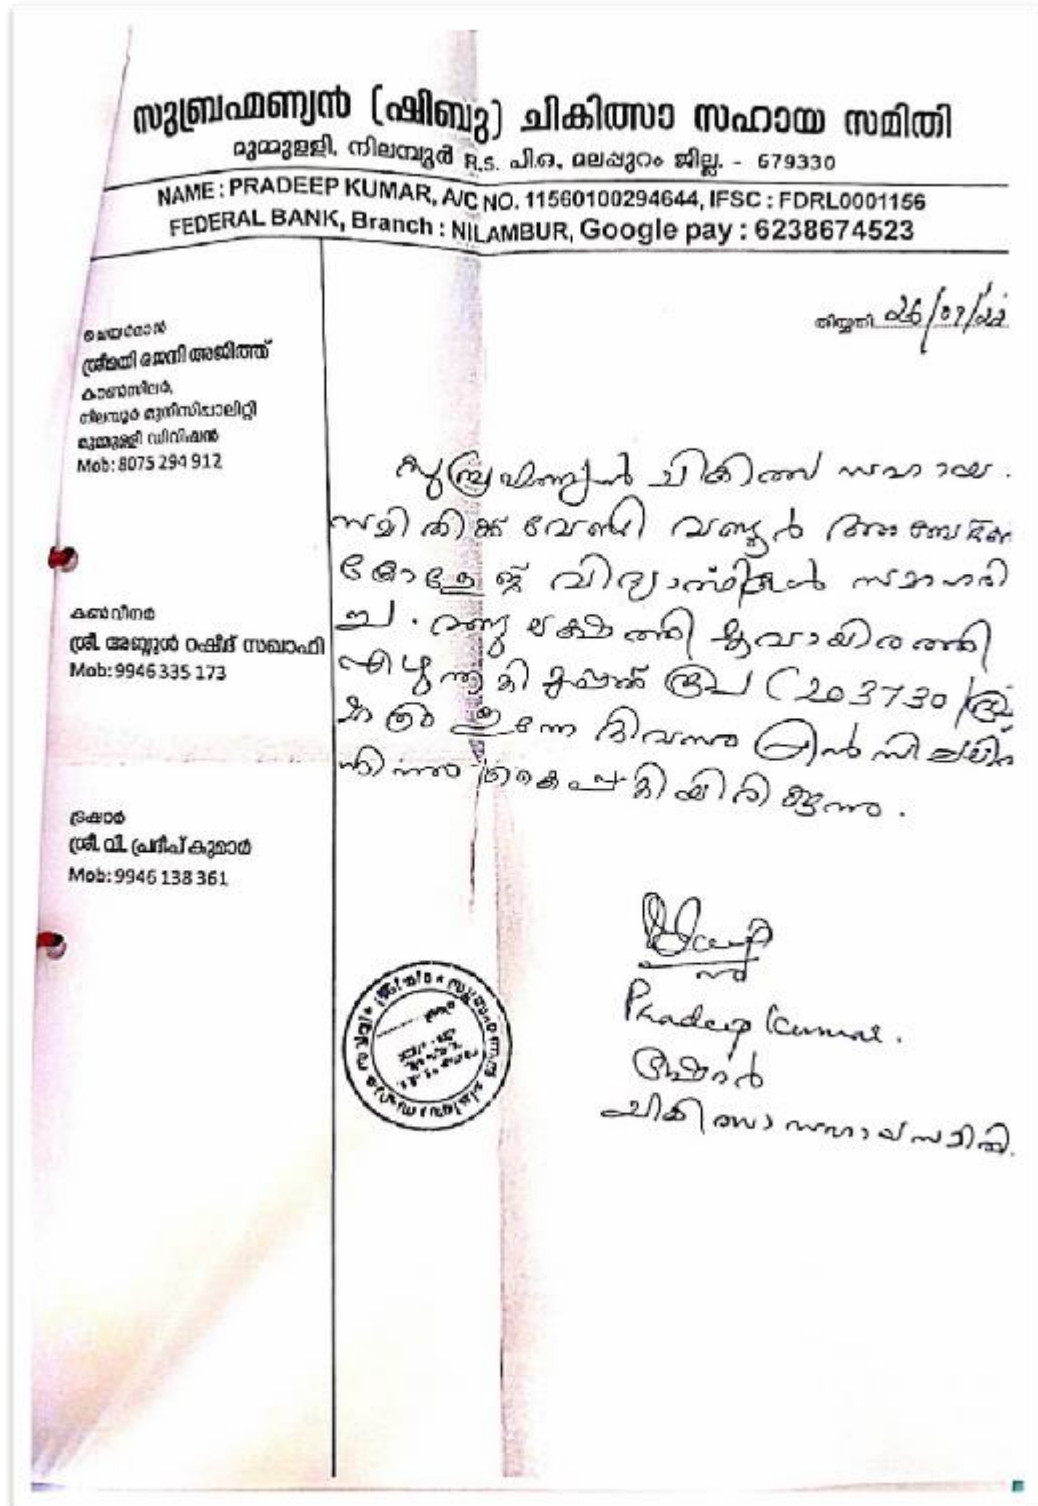 സുബ്രഹ്മണ്യൻ (ഷിബു) ചികിത്സാ സഹായ സമിതി
മുമ്മുള്ളി, നിലമ്പൂർ R.S. പി.ഒ, മലപ്പുറം ജില്ല. - 679330
NAME : PRADEEP KUMAR, A/C NO. 11560100294644, IFSC : FDRL0001156
FEDERAL BANK, Branch : NILAMBUR, Google pay : 6238674523
തിയ്യതി 26/07/22
ചെയർമാൻ
ശ്രീമതി രജനി അജിത്ത്
കൗൺസിലർ,
നിലമ്പൂർ മുനിസിപ്പാലിറ്റി
മുമ്മുള്ളി ഡിവിഷൻ
Mob: 8075 294 912
കൺവീനർ
ശ്രീ. അബ്ദുൾ റഷീദ് സഖാഫി
Mob: 9946 335 173
ട്രഷറർ
ശ്രീ. വി. പ്രദീപ് കുമാർ
Mob: 9946 138 361
സുബ്രഹ്മണ്യൻ ചികിത്സ സഹായ
സമിതിക്ക് വേണ്ടി വണ്ടൂർ
കോളേജ് വിദ്യാർത്ഥികൾ സമാഹരി
ച്ച. രണ്ടു ലക്ഷത്തി മൂവായിരത്തി
എഴുന്നൂറ്റി മുപ്പത് രൂപ (203730/രൂ
ഇന്നേ ദിവസം പ്രിൻസിപ്പലിൽ
നിന്നും കൈപ്പറ്റിയിരിക്കുന്നു.
Pradeep Kumar.
ട്രഷറർ
ചികിത്സാ സഹായ സമിതി.